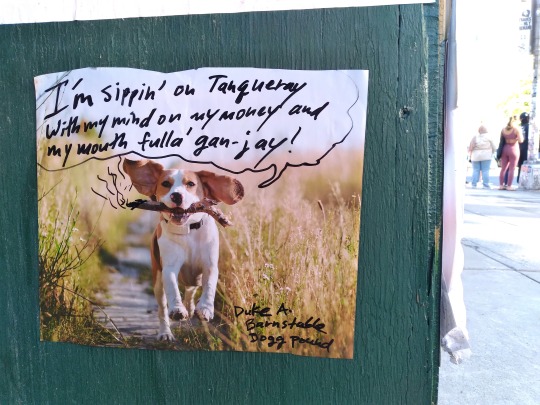 I'm sippin' on Tangueray
with my mind on my money and
my mouth fulla' gan-jay!
Duke A.
Barnstable
Dogg Pound